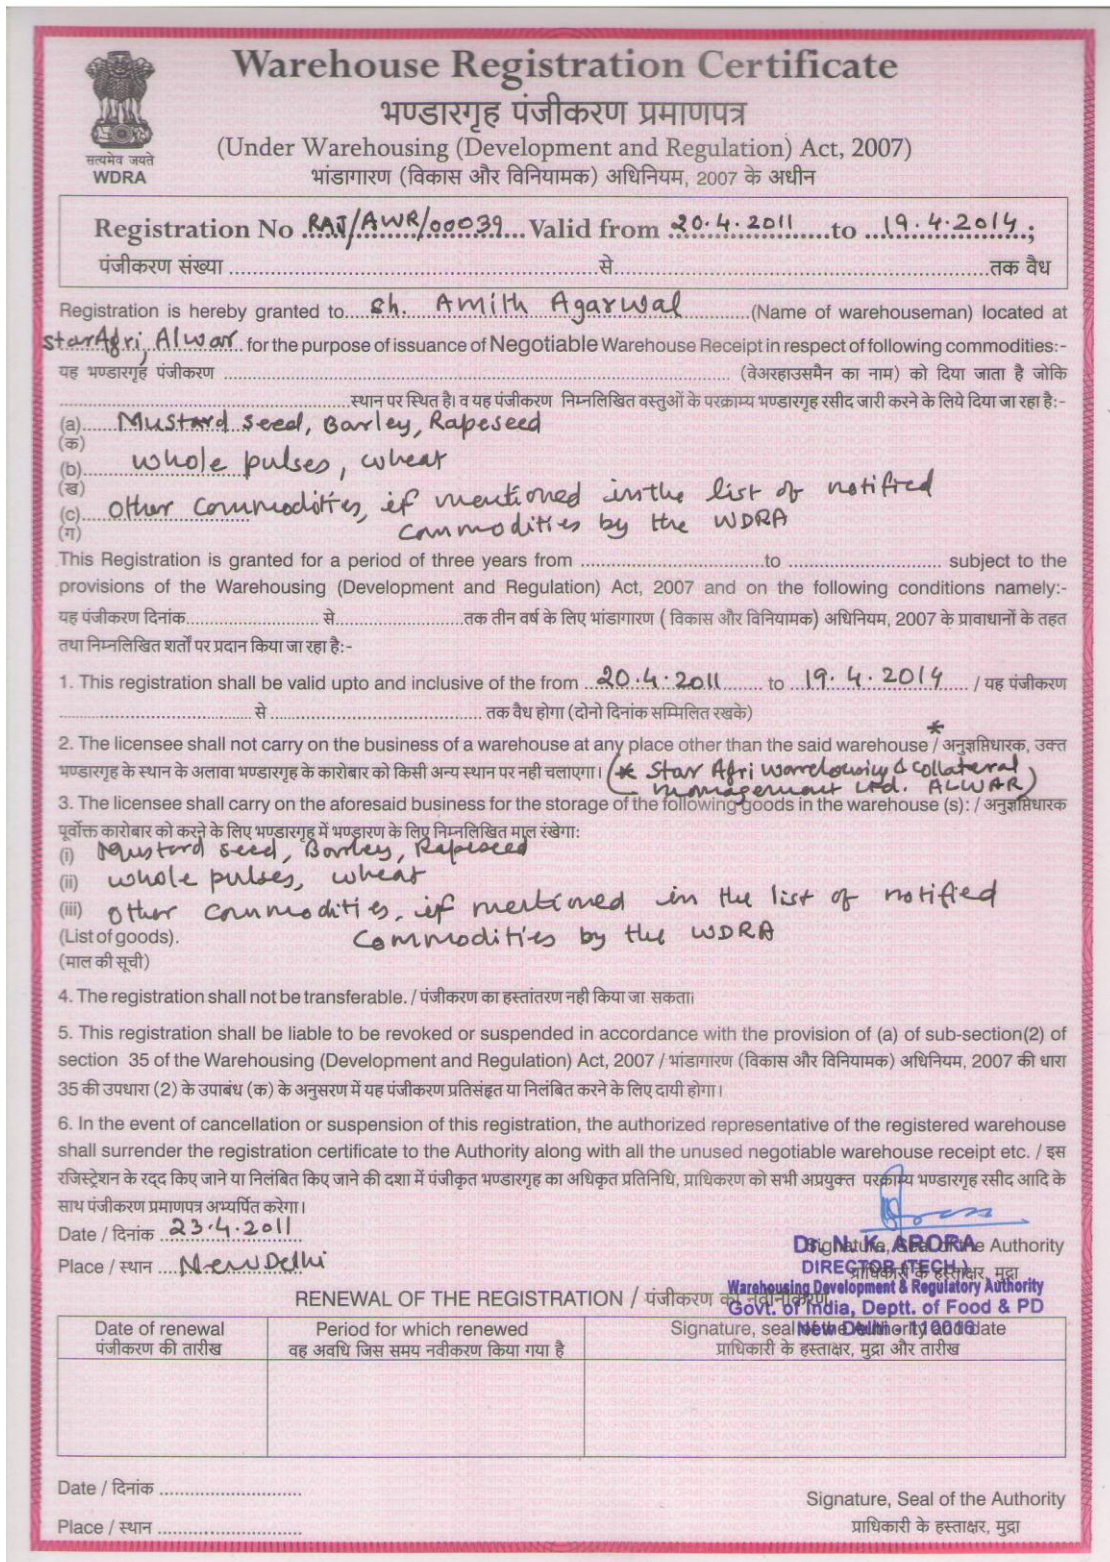 Warehouse Registration Certificate
भण्डारगृह पंजीकरण प्रमाणपत्र
(Under Warehousing (Development and Regulation) Act, 2007)
भांडागारण (विकास और विनियामक) अधिनियम, 2007 के अधीन
सत्यमेव जयते
WDRA
Registration No RAJ/AWR/00039 Valid from 20.4.2011 to 19.4.2014;
पंजीकरण संख्या से तक वैध
Registration is hereby granted to Sh. Amith Agarwal (Name of warehouseman) located at
StarAgri, Alwar for the purpose of issuance of Negotiable Warehouse Receipt in respect of following commodities:-
यह भण्डारगृह पंजीकरण (वेअरहाउसमैन का नाम) को दिया जाता है जोकि
स्थान पर स्थित है। व यह पंजीकरण निम्नलिखित वस्तुओं के परक्राम्य भण्डारगृह रसीद जारी करने के लिये दिया जा रहा है:-
(a) Mustard seed, Barley, Rapeseed
(क)
(b) whole pulses, wheat
(ख)
(c) other commodities, if mentioned in the list of notified
(ग) commodities by the WDRA
This Registration is granted for a period of three years from to subject to the
provisions of the Warehousing (Development and Regulation) Act, 2007 and on the following conditions namely:-
यह पंजीकरण दिनांक से तक तीन वर्ष के लिए भांडागारण ( विकास और विनियामक) अधिनियम, 2007 के प्रावाधानों के तहत
तथा निम्नलिखित शर्तों पर प्रदान किया जा रहा है:-
1. This registration shall be valid upto and inclusive of the from 20.4.2011 to 19.4.2014 / यह पंजीकरण
से तक वैध होगा (दोनो दिनांक सम्मिलित रखके)
2. The licensee shall not carry on the business of a warehouse at any place other than the said warehouse * / अनुज्ञप्तिधारक, उक्त
भण्डारगृह के स्थान के अलावा भण्डारगृह के कारोबार को किसी अन्य स्थान पर नही चलाएगा। (* Star Agri warehousing & Collateral
management Ltd. ALWAR)
3. The licensee shall carry on the aforesaid business for the storage of the following goods in the warehouse (s): / अनुज्ञप्तिधारक
पूर्वोक्त कारोबार को करने के लिए भण्डारगृह में भण्डारण के लिए निम्नलिखित माल रंखेगा:
(i) Mustard seed, Barley, Rapeseed
(ii) whole pulses, wheat
(iii) other commodities, if mentioned in the list of notified
(List of goods). Commodities by the WDRA
(माल की सूची)
4. The registration shall not be transferable. / पंजीकरण का हस्तांतरण नही किया जा सकता।
5. This registration shall be liable to be revoked or suspended in accordance with the provision of (a) of sub-section(2) of
section 35 of the Warehousing (Development and Regulation) Act, 2007 / भांडागारण (विकास और विनियामक) अधिनियम, 2007 की धारा
35 की उपधारा (2) के उपाबंध (क) के अनुसरण में यह पंजीकरण प्रतिसंहृत या निलंबित करने के लिए दायी होगा।
6. In the event of cancellation or suspension of this registration, the authorized representative of the registered warehouse
shall surrender the registration certificate to the Authority along with all the unused negotiable warehouse receipt etc. / इस
रजिस्ट्रेशन के रदद किए जाने या निलंबित किए जाने की दशा में पंजीकृत भण्डारगृह का अधिकृत प्रतिनिधि, प्राधिकरण को सभी अप्रयुक्त परक्राम्य भण्डारगृह रसीद आदि के
साथ पंजीकरण प्रमाणपत्र अभ्यर्पित करेगा।
Date / दिनांक 23.4.2011
Signature, Seal of the Authority
Dr. N. K. ARORA
Place / स्थान New Delhi
DIRECTOR (TECH.)
प्राधिकारी के हस्ताक्षर, मुद्रा
Warehousing Development & Regulatory Authority
RENEWAL OF THE REGISTRATION / पंजीकरण का नवीनीकरण
Govt. of India, Deptt. of Food & PD
New Delhi - 110016
Date of renewal Period for which renewed Signature, seal of the Authority and date
पंजीकरण की तारीख वह अवधि जिस समय नवीकरण किया गया है प्राधिकारी के हस्ताक्षर, मुद्रा और तारीख
Date / दिनांक
Signature, Seal of the Authority
Place / स्थान प्राधिकारी के हस्ताक्षर, मुद्रा